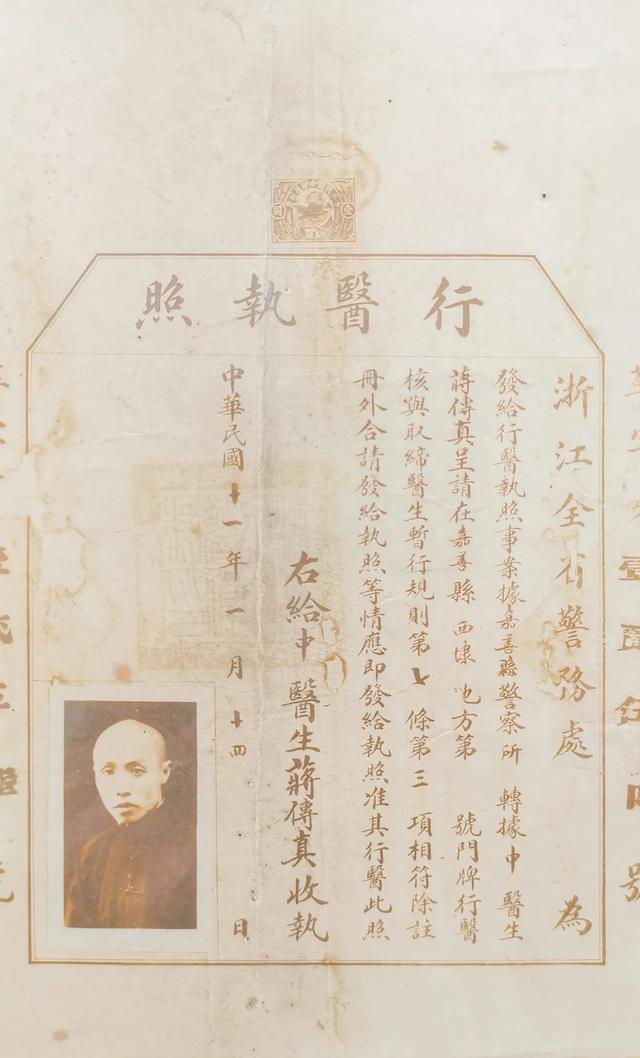 行醫執照
浙江全省警務處 為
發給行醫執照事案據嘉善縣警察所 轉據中 醫生
蔣傳真呈請在嘉善縣 西塘 地方第 號門牌行醫
核與取締醫生暫行規則第七 條第三 項相符除註
冊外合請發給執照等情應即發給執照准其行醫此照
右給中 醫生蔣傳真收執
中華民國十一年一月十四 日